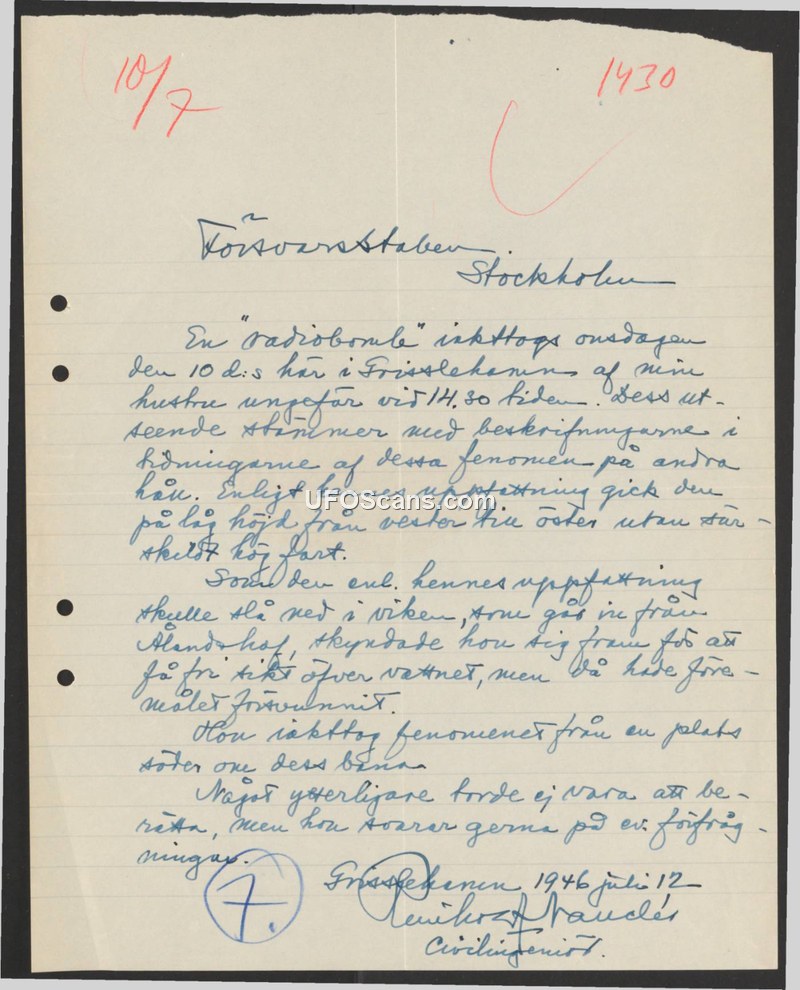 10/7
1430
Försvarsstaben.
Stockholm
En "radiobomb" iakttogs onsdagen
den 10 d:s här i Grisslehamn af min
hustru ungefär vid 14.30 tiden. Dess ut-
seende stämmer med beskrifningarne i
tidningarne af dessa fenomen på andra
håll. Enligt hennes uppfattning gick den
på låg höjd från vester till öster utan sär-
skildt hög fart.
Som den enl. hennes uppfattning
skulle slå ned i viken, som går in från
Ålandshaf, skyndade hon sig fram för att
få fri sikt öfver vattnet, men då hade före-
målet försvunnit.
Hon iakttog fenomenet från en plats
söder om dess bana
Något ytterligare torde ej vara att be-
rätta, men hon svarar gerna på ev. förfråg-
ningar.
7.
Grisslehamn 1946 juli 12
Nauclér
Civilingeniör.
UFOScans.com